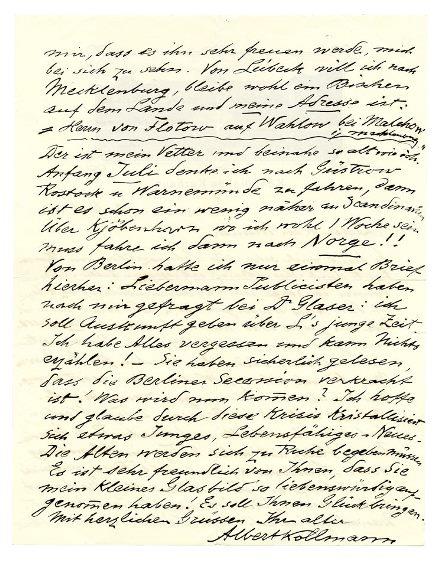 mir, dass es ihn sehr freuen werde, mich
bei sich zu sehn. Von Lübeck will ich nach
Mecklenburg, bleibe wohl ein Bischen
auf dem Lande und meine Adresse ist.
= Herrn von Flotow auf Wahlow bei Malchow
i/ Mecklenburg"
Der ist mein Vetter und beinahe so alt wie ich.
Anfang Juli denke ich nach Güstrow
Rostock u Warnemünde zu fahren, dann
ist es schon ein wenig näher zu Scandinavien
Über Kjöbenhavn, wo ich wohl 1 Woche sein
muss fahre ich dann nach Norge!!
Von Berlin hatte ich nur einmal Brief
hierher: Liebermann Publicisten haben
nach mir gefragt bei Dr Glaser: ich
soll Auskunft geben über L's junge Zeit.
Ich habe Alles vergessen und kann Nichts
erzählen! – Sie haben sicherlich gelesen,
dass die Berliner Secession verkracht
ist! Was wird nun kommen? Ich hoffe
und glaube durch diese Krisis kristallisiert
sich etwas Junges, Lebensfähiges – Neues.
Die Alten werden sich zu Ruhe begeben müssen
Es ist sehr freundlich von Ihnen, dass Sie
mein kleines Glasbild so liebenswürdig auf-
genommen haben. Es soll Ihnen Glück bringen.
Mit herzlichen Grüssen Ihr alter
Albert Kollmann